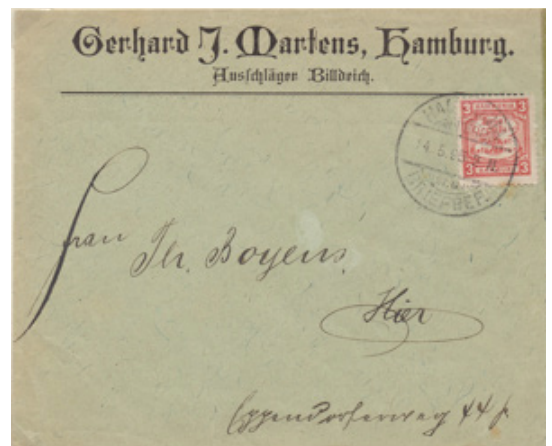 Gerhard J. Martens, Hamburg.
Ausschläger Billdeich.
3 3
3 3
14.5.
Frau Th. Boyens.
Hier
Eppendorferweg 44